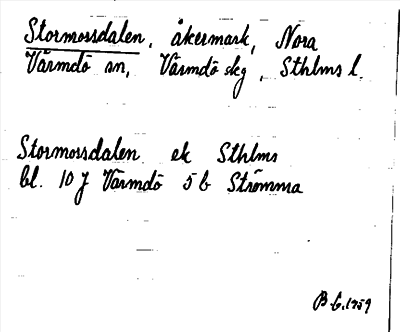 Stormossdalen, åkermark, Nora
Värmdö sn, Värmdö skg, Sthlms l.
Stormossdalen ek Sthlms
bl. 10 J Värmdö 5 b Strömma
B 6.1959